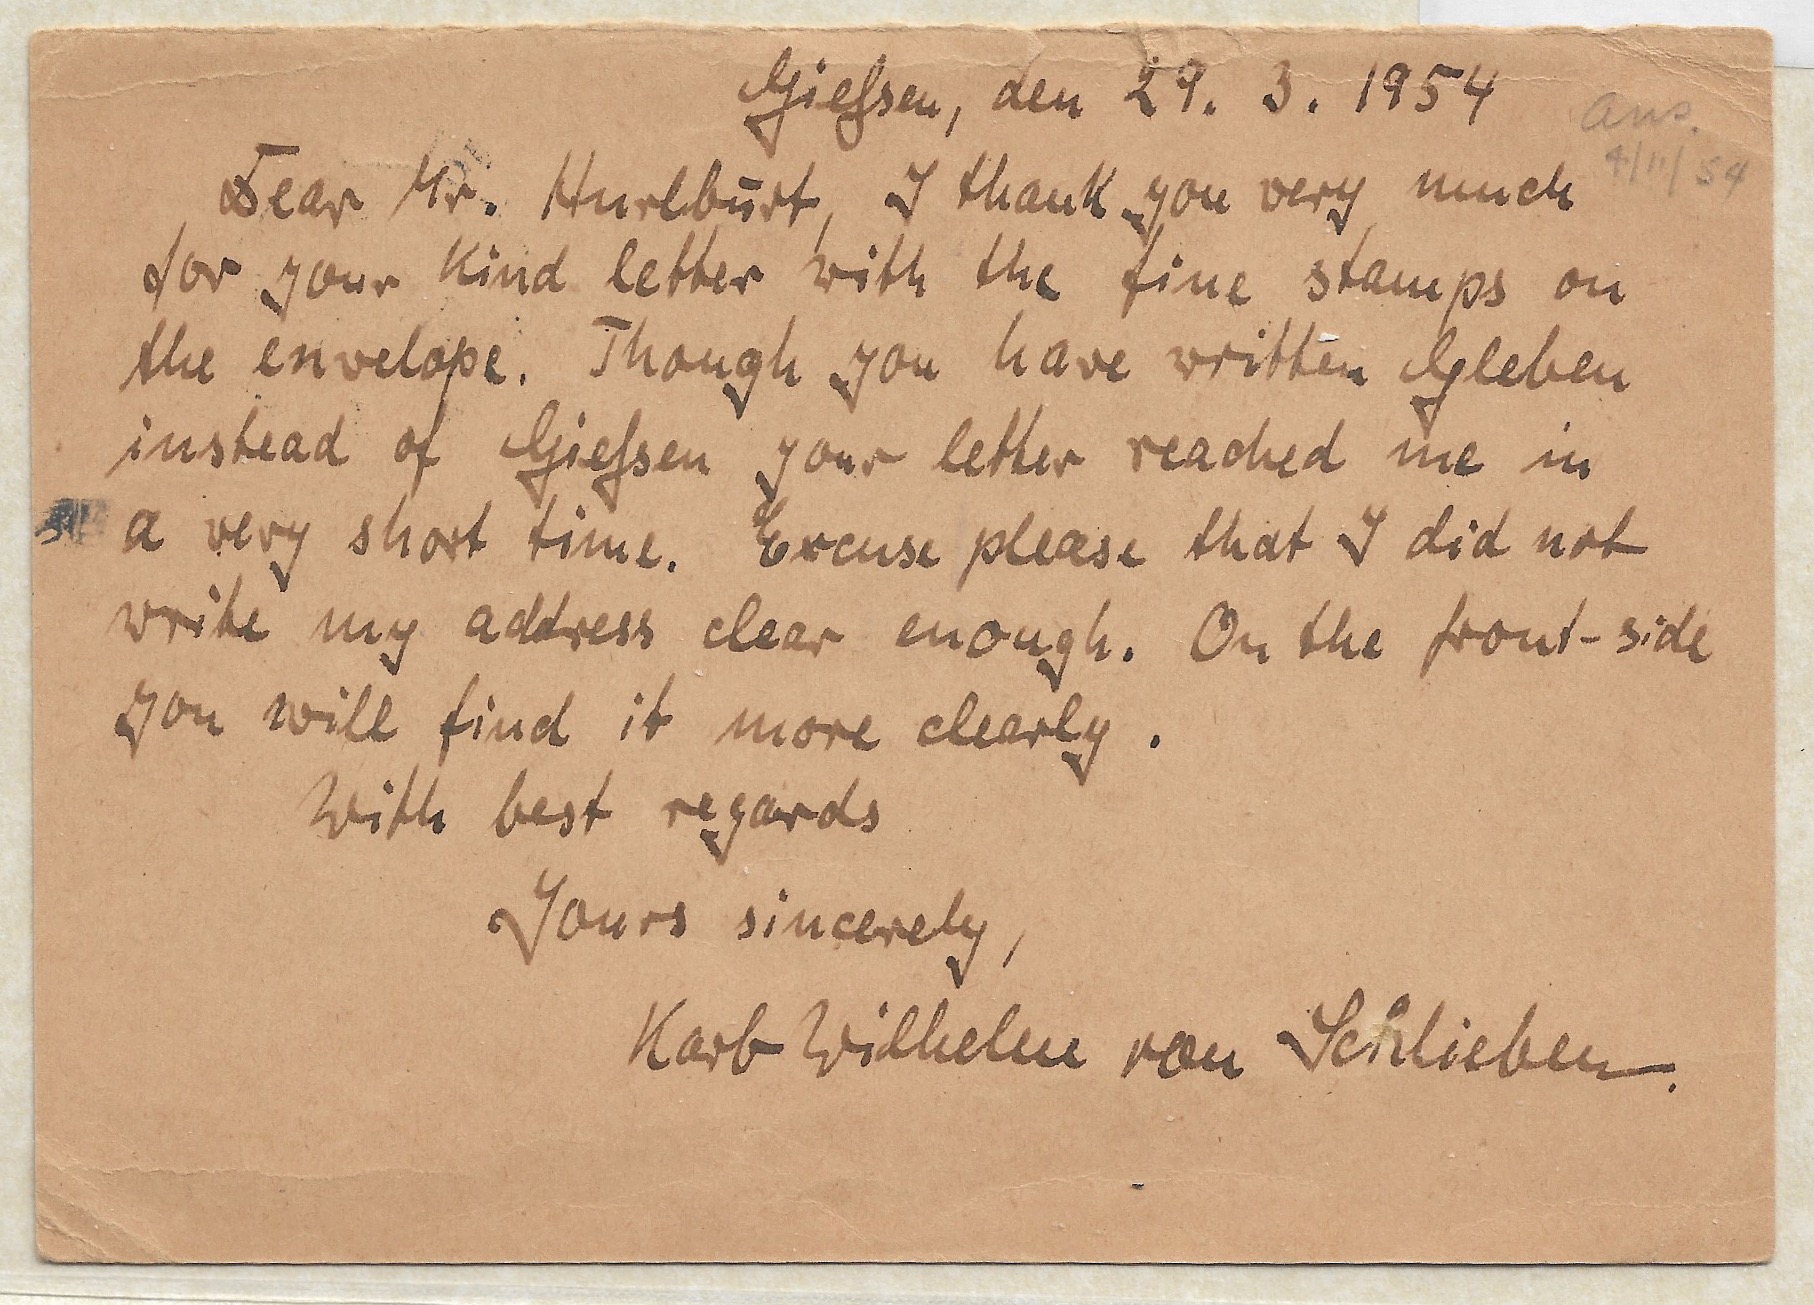 Gießen, den 29. 3. 1954
ans.
4/11/54
Dear Mr. Hurlburt, I thank you very much
for your kind letter with the fine stamps on
the envelope. Though you have written Gleben
instead of Gießen your letter reached me in
a very short time. Excuse please that I did not
write my address clear enough. On the front-side
you will find it more clearly.
With best regards
Yours sincerely,
Karl Wilhelm von Schlieben.